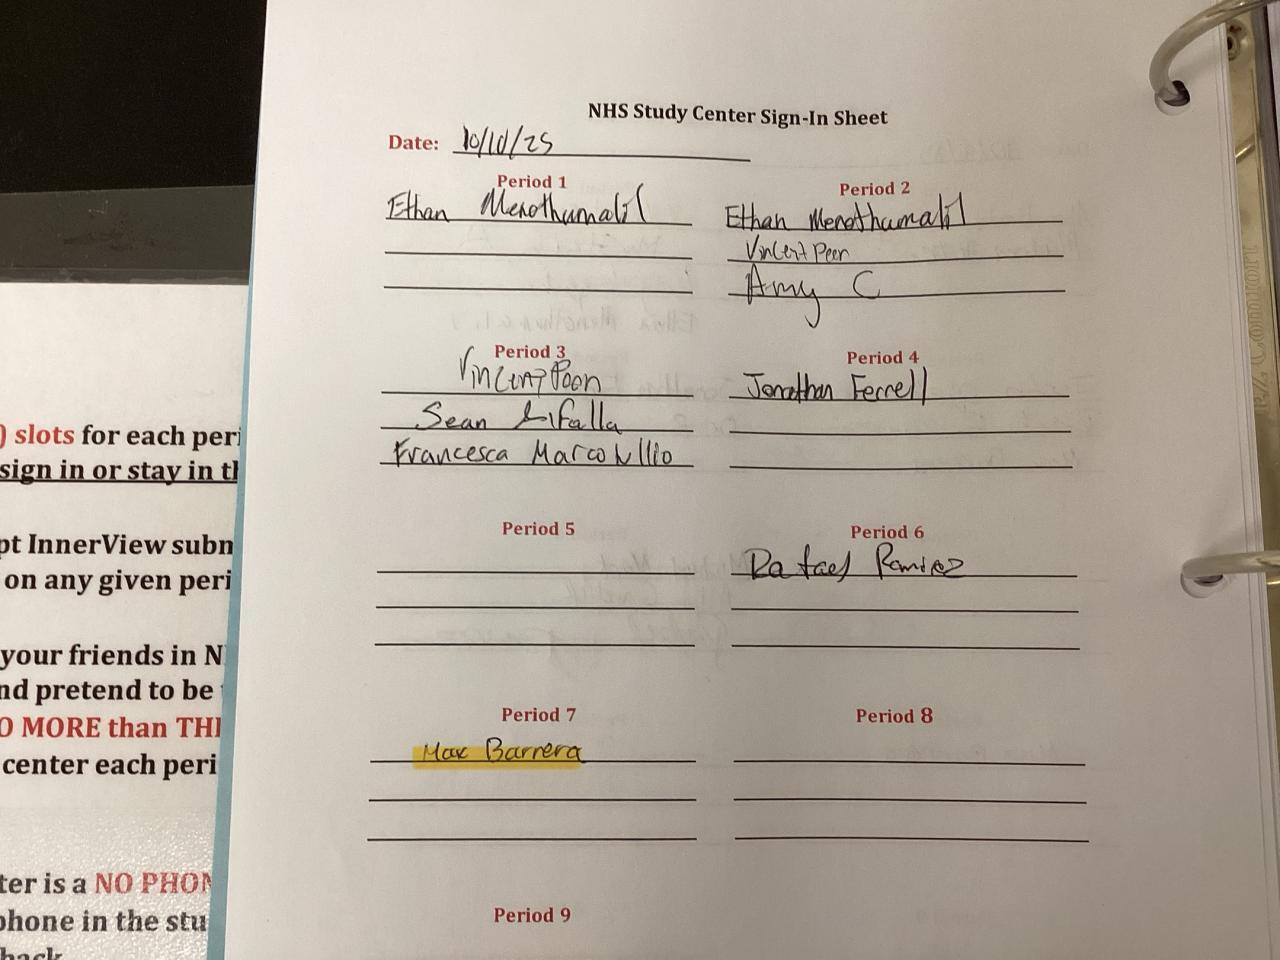 NHS Study Center Sign-In Sheet
Date: 10/10/25
Period 1
Ethan Menothumalil
Period 2
Ethan Menothumalil
Vincent Poon
Amy C
Period 3
Vincent Poon
Sean
Francesca
Period 4
Jonathan Ferrell
Period 5
Period 6
Rafael Ramirez
Period 7
Max Barrera
Period 8
Period 9
) slots for each peri
sign in or stay in th
pt InnerView subn
on any given peri
your friends in N
nd pretend to be
O MORE than THI
center each peri
ter is a NO PHON
phone in the stu
back